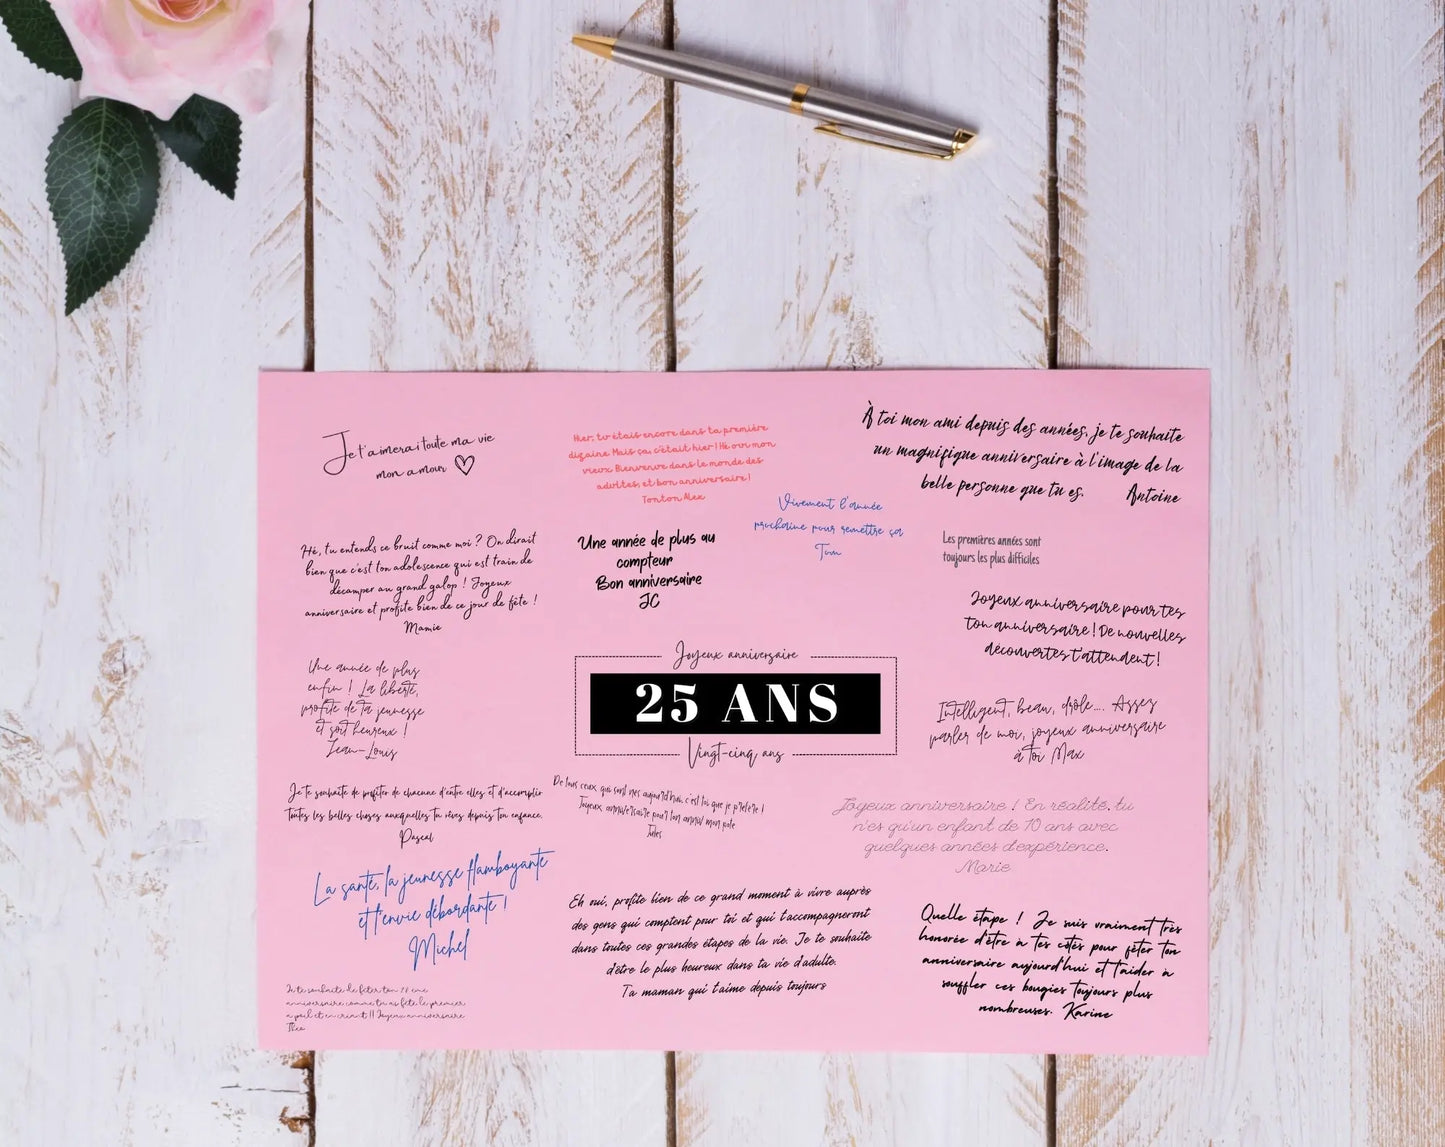 Je t'aimerai toute ma vie
mon amour
Hier, tu étais encore dans ta première
dizaine. Mais ça, c'était hier ! Hé oui mon
vieux. Bienvenue dans le monde des
adultes, et bon anniversaire !
Tonton Alex
À toi mon ami depuis des années, je te souhaite
un magnifique anniversaire à l'image de la
belle personne que tu es. Antoine
Vivement l'année
prochaine pour remettre ça
Tom
Hé, tu entends ce bruit comme moi ? On dirait
bien que c'est ton adolescence qui est train de
décamper au grand galop ! Joyeux
anniversaire et profite bien de ce jour de fête !
Mamie
Une année de plus au
compteur
Bon anniversaire
JC
Les premières années sont
toujours les plus difficiles
Joyeux anniversaire pour tes
ton anniversaire ! De nouvelles
découvertes t'attendent !
Une année de plus
enfin ! La liberté,
profite de ta jeunesse
et soit heureux !
Jean-Louis
Joyeux anniversaire
25 ANS
Vingt-cinq ans
Intelligent, beau, drôle.... Assez
parler de moi, joyeux anniversaire
à toi Max
Je te souhaite de profiter de chacune d'entre elles et d'accomplir
toutes les belles choses auxquelles tu rêves depuis ton enfance.
Pascal
De tous ceux qui sont nés aujourd'hui, c'est toi que je préfère !
Joyeux anniversaire pour ton anniv mon pote
Jules
Joyeux anniversaire ! En réalité, tu
n'es qu'un enfant de 10 ans avec
quelques années d'expérience.
Marie
La santé, la jeunesse flamboyante
et l'envie débordante !
Michel
Eh oui, profite bien de ce grand moment à vivre auprès
des gens qui comptent pour toi et qui t'accompagneront
dans toutes ces grandes étapes de la vie. Je te souhaite
d'être le plus heureux dans ta vie d'adulte.
Ta maman qui t'aime depuis toujours
Quelle étape ! Je suis vraiment très
honorée d'être à tes côtés pour fêter ton
anniversaire aujourd'hui et t'aider à
souffler ces bougies toujours plus
nombreuses. Karine
Je te souhaite de fêter ton ème
anniversaire comme tu as fêté le premier
à poil et en criant !! Joyeux anniversaire
Théo